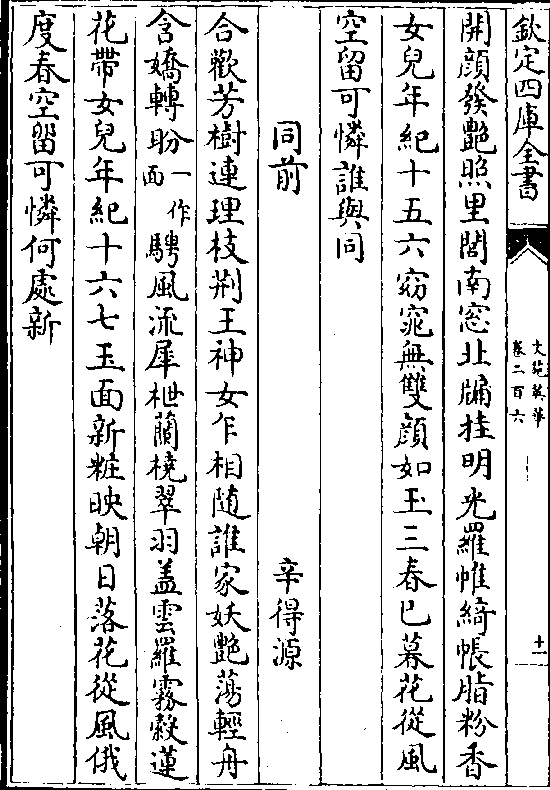 欽定四庫全書
文苑英華
卷二百六
十一
開顔發艶照里閭南窓北牖挂明光羅帷綺帳脂粉香
女兒年紀十五六窈窕無雙顔如玉三春已暮花從風
空留可憐誰與同
同前 辛得源
合歡芳樹連理枝荆王神女乍相随誰家妖艶蕩輕舟
含嬌轉盼一作面騁風流犀枻蘭橈翠羽盖雲羅霧縠蓮
花帶女兒年紀十六七玉面新粧映朝日落花從風俄
度春空留可憐何處新